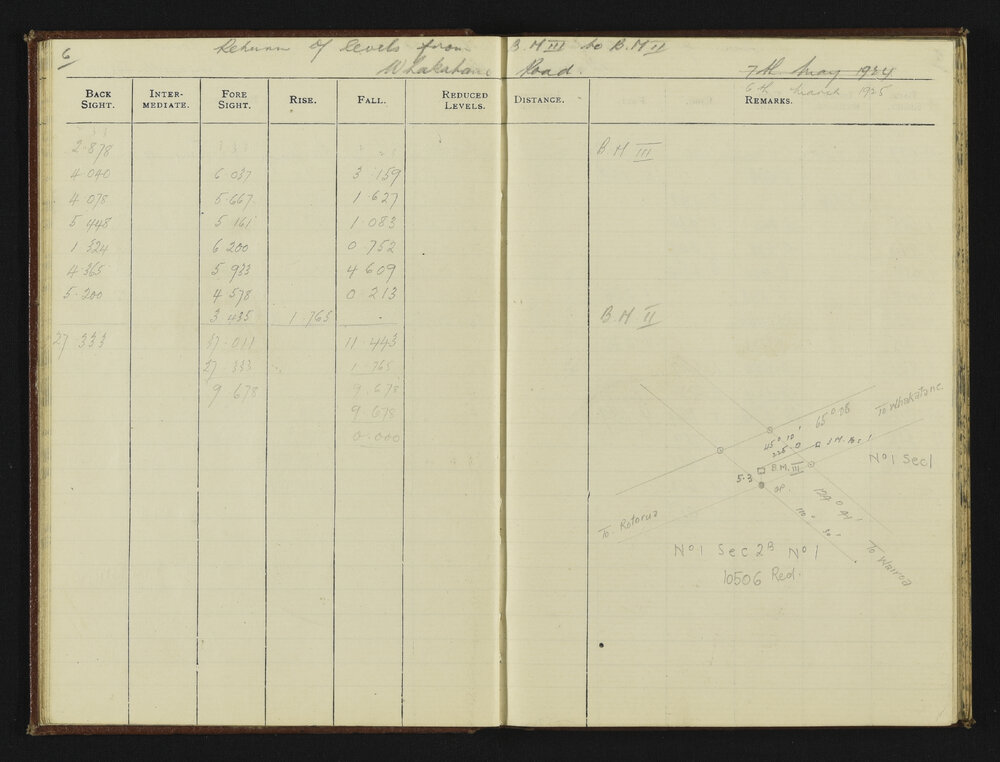 6 Return of levels from B.M III to B.M II
Whakatane Road. 7th May 1924
6th March 1925
BACK SIGHT. INTER-MEDIATE. FORE SIGHT. RISE. FALL. REDUCED LEVELS. DISTANCE. REMARKS.
2.878 B.M III
4.040 6 037 3.159
4.078 5.667 1.627
5.448 5 161 1.083
1 324 6 200 0.752
4.365 5 933 4 609
5.200 4 578 0.213
3 435 1.765 B.M. II
27 333 37.011 11.443
27.333 1.765
9.678 9.678
9.678
0.000
65° 08
To Whakatane
45° 10'
225.0
No 1 Sec 1
B.M. III
5.3
To Rotorua
To Wairoa
No 1 Sec 2B No 1
10506 Red.